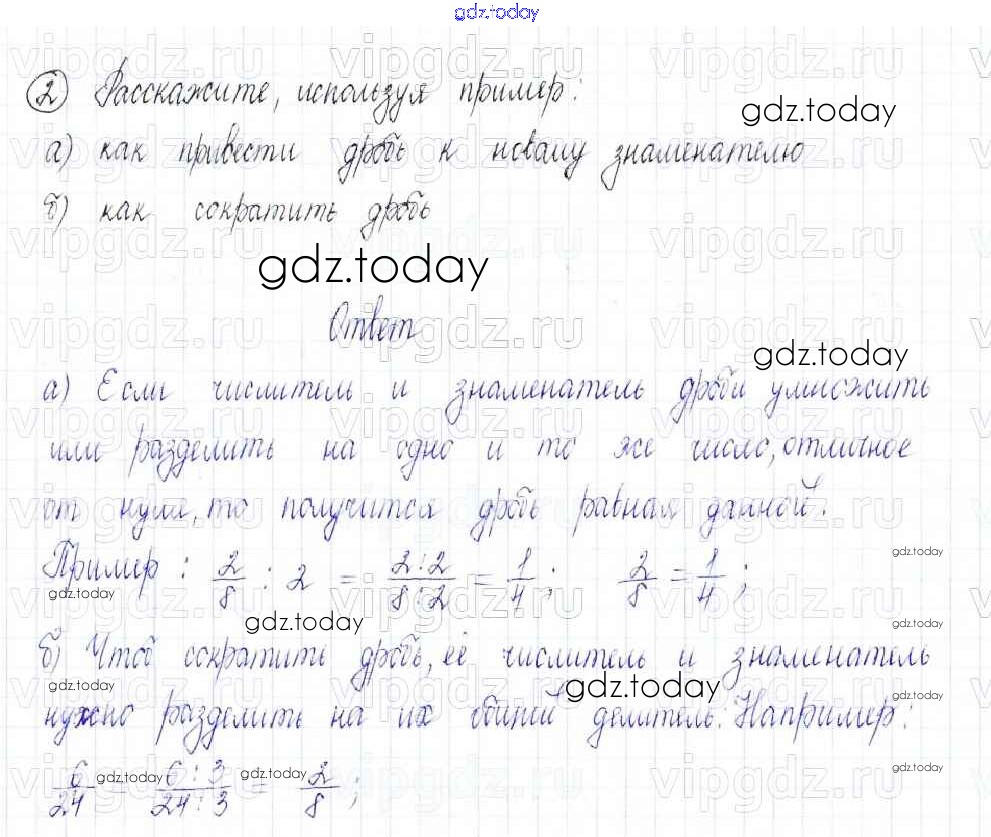 gdz.today
② Расскажите, используя пример:
gdz.today
а) как привести дробь к новому знаменателю
б) как сократить дробь
gdz.today
Ответ
gdz.today
а) Если числитель и знаменатель дроби умножить
или разделить на одно и то же число, отличное
от нуля, то получится дробь равная данной.
gdz.today
Пример: 2/8 : 2 = 2:2/8:2 = 1/4; 2/8 = 1/4;
gdz.today
gdz.today
gdz.today
б) Чтоб сократить дробь, её числитель и знаменатель
gdz.today
gdz.today
gdz.today
нужно разделить на их общий делитель. Например:
gdz.today
gdz.today
gdz.today
6/24 = 6:3/24:3 = 2/8;
vipgdz.ru